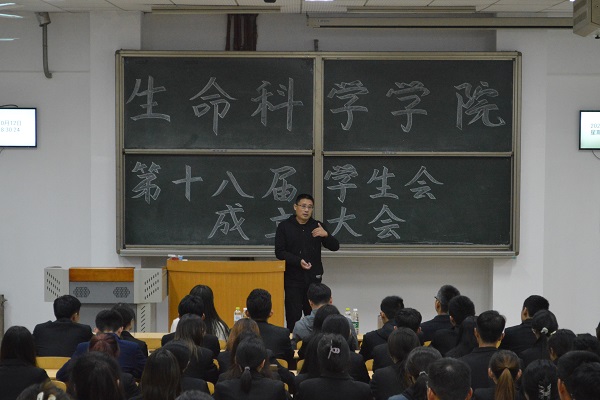 生命科学学院
第十八届学生会
成立大会